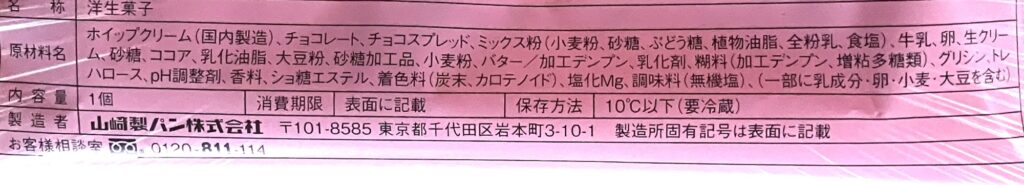 名称 洋生菓子
原材料名 ホイップクリーム(国内製造)、チョコレート、チョコスプレッド、ミックス粉(小麦粉、砂糖、ぶどう糖、植物油脂、全粉乳、食塩)、牛乳、卵、生クリー
ム、砂糖、ココア、乳化油脂、大豆粉、砂糖加工品、小麦粉、バター/加工デンプン、乳化剤、糊料(加工デンプン、増粘多糖類)、グリシン、トレ
ハロース、pH調整剤、香料、ショ糖エステル、着色料(炭末、カロテノイド)、塩化Mg、調味料(無機塩)、(一部に乳成分・卵・小麦・大豆を含む)
内容量 1個 消費期限 表面に記載 保存方法 10℃以下(要冷蔵)
製造者 山崎製パン株式会社 〒101-8585 東京都千代田区岩本町3-10-1 製造所固有記号は表面に記載
お客様相談室 0120-811-114